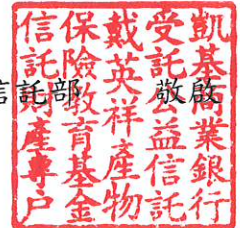 凱基商業銀行
受託公益信託
戴英祥產物
保險教育基金
信託財產專戶
信託部 敬啟